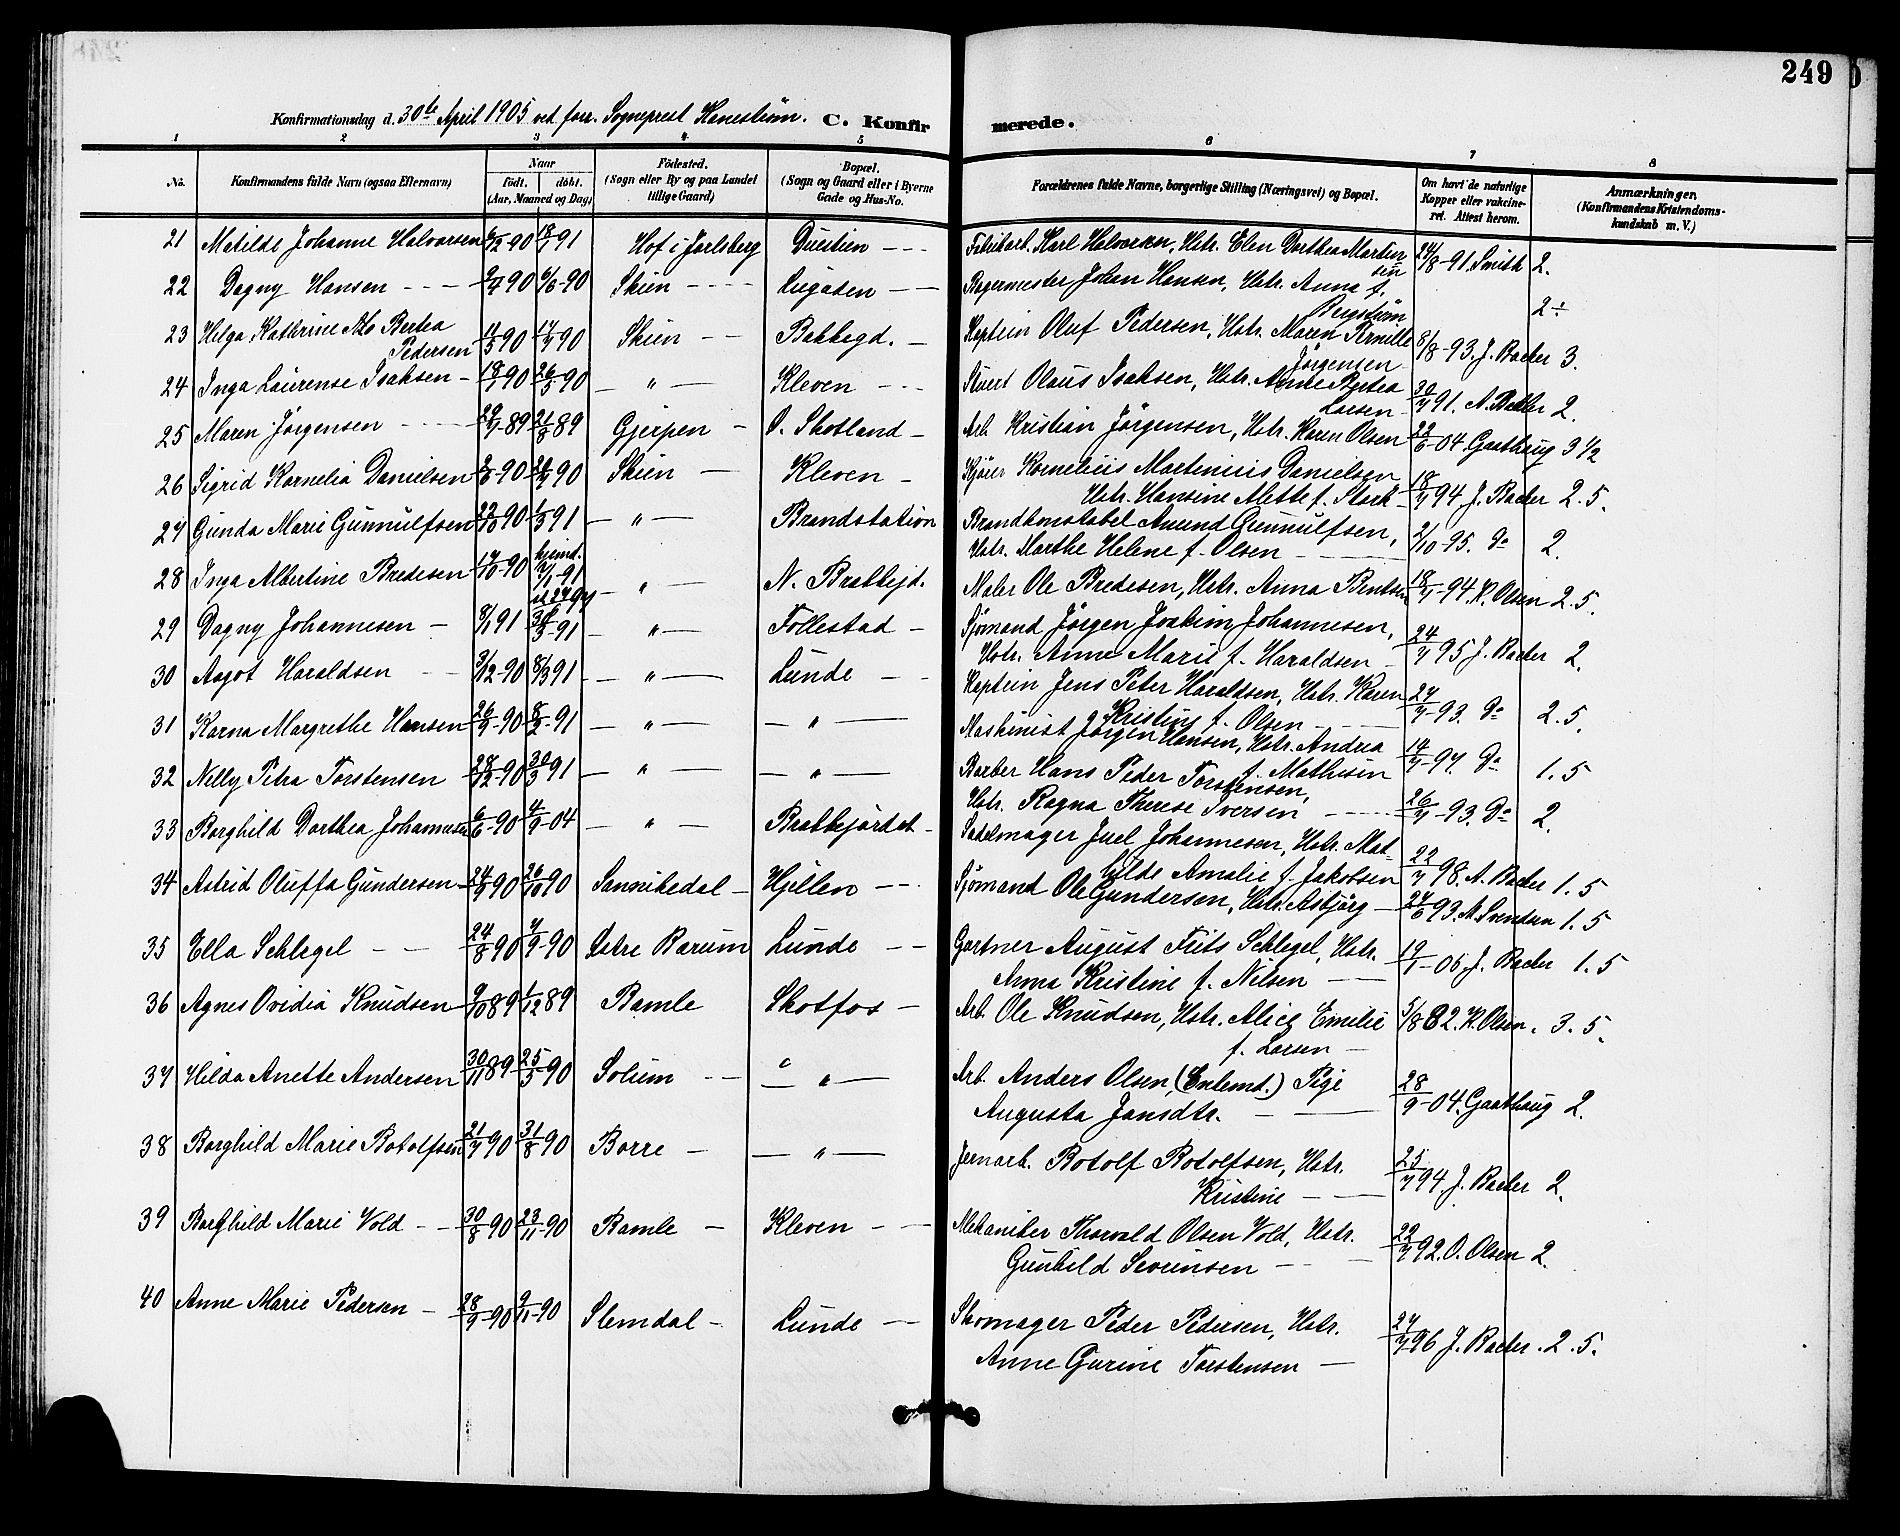 249
Konfirmationsdag d. 30te April 1905 ved forr. Sogneprest Hanestrøm. C. Konfirmerede.
1 2 3 4 5 6 7 8
No. Konfirmandens fulde Navn (ogsaa Efternavn) Naar født. døbt. (Aar, Maaned og Dag) Fødested. (Sogn eller By og paa Landet tillige Gaard) Bopæl. (Sogn og Gaard eller i Byerne Gade og Hus-No. Forældrenes fulde Navne, borgerlige Stilling (Næringsvei) og Bopæl. Om havt de naturlige Kopper eller vakcineret. Attest herom. Anmærkninger. (Konfirmandens Kristendomskundskab m. V.)
21 Matilde Johanne Halvorsen 6/12 90 18/1 91 Hof i Jarlsberg Duestien Fabrikarb. Karl Halvorsen, Hstr. Elen Dorthea Martinsen 24/8-91. Smith 2.
22 Dagny Hansen 2/4 90 6/6-90 Skien Lugaden Bagermester Johan Hansen, Hstr. Anna f. Bergstrøm 2÷
23 Helga Kathrine Bertea Pedersen 11/5 90 17/7 90 Skien Bakkegd. Kaptein Oluf Pedersen, Hstr. Maren Pernille Jørgensen 8/8-93. J. Backer 3.
24 Inga Laurense Isaksen 18/1 90 26/5-90 — " — Kleven Stuert Olaus Isaksen, Hstr. Anne Bertea Larsen 30/7 91. A. Backer 2.
25 Maren Jørgensen 29/7-89 21/8 89 Gjerpen Ø. Skotland Arb. Kristian Jørgensen, Hstr. Karen Olsen 22/6-04. Gaathaug 3 1/2
26 Sigrid Kornelia Danielsen 2/6-90 24/7 90 Skien Kleven Kjører Kornelius Martinius Danielsen Hstr. Hansine Mette f. Stork 18/7 94 J. Backer 2.5.
27 Gunda Marie Gunnulfsen 22/10 90 1/3 91 — " — Brandstation Brandkonstabel Amund Gunnulfsen, Hstr. Marthe Helene f. Olsen 2/10-95. do 2.
28 Inga Albertine Bredesen 17/10-90 hjemd. 2/1-91 — " — N. Brattejd. Maler Ole Bredesen, Hstr. Anna Bentsen 18/7-94. K. Olsen 2.5.
29 Dagny Johannesen 3/1 91 30/3-91 — " — Follestad Sjømand Jørgen Joakim Johannesen, Hstr. Anne Marie f. Haraldsen 24/7 95 J. Backer 2.
30 Aagot Haraldsen 3/12-90 8/3 91 — " — Lunde Kaptein Jens Peter Haraldsen, Hstr. Karen Kristine f. Olsen 27/7-93. do 2.5.
31 Karna Margrethe Hansen 26/9-90 8/2-91 — " — — " — Maskinist Jørgen Hansen, Hstr. Andrea f. Mathisen 14/7-97. do 1.5
32 Nelly Petra Torstensen 28/12-90 30/3 91 — " — — " — Barber Hans Peder Torstensen, Hstr. Ragna Therese Iversen 26/7-93. do 2.
33 Borghild Dorthea Johannesen 6/6-90 4/9-04 — " — Brattejordet Sadelmager Juel Johannesen, Hstr. Mathilde Amalie f. Jakobsen 22/7 98. A. Backer 1.5
34 Astrid Oluffa Gundersen 24/9 90 26/10 90 Sannikedal Hjellen Sjømand Ole Gundersen, Hstr. Asbjørg 27/6 93. A. Svendsen 1.5
35 Ella Schlegel 24/8 90 7/9-90 Østre Bærum Lunde Gartner August Frits Schlegel, Hstr. Anna Kristine f. Nilsen 19/1-05. J. Backer 1.5
36 Agnes Ovidia Knudsen 9/10 89 1/12 89 Bamle Skotfos Arb. Ole Knudsen, Hstr. Alice Emilie f. Larsen 5/8 82. K. Olsen. 3.5.
37 Hilda Anette Andersen 30/11 89 25/5-90 Solum — " — Arb. Anders Olsen, (Enkemd.) Pige Augusta Jansdtr. 28/9-04. Gaathaug 2.
38 Borghild Marie Botolfsen 21/7 90 31/8-90 Borre — " — Jernarb. Botolf Botolfsen, Hstr. Kristine 25/7 94 J. Backer 2.
39 Borghild Marie Vold 30/8 90 23/11-90 Bamle Kleven Mekaniker Thorvald Olsen Vold, Hstr. Gunhild Sevrinsen 22/7 92. O. Olsen 2.
40 Anne Marie Pedersen 28/9-90 9/11-90 Slemdal Lunde Skomager Peder Pedersen, Hstr. Anne Gurine Torstensen 27/7 96 J. Backer. 2.5.